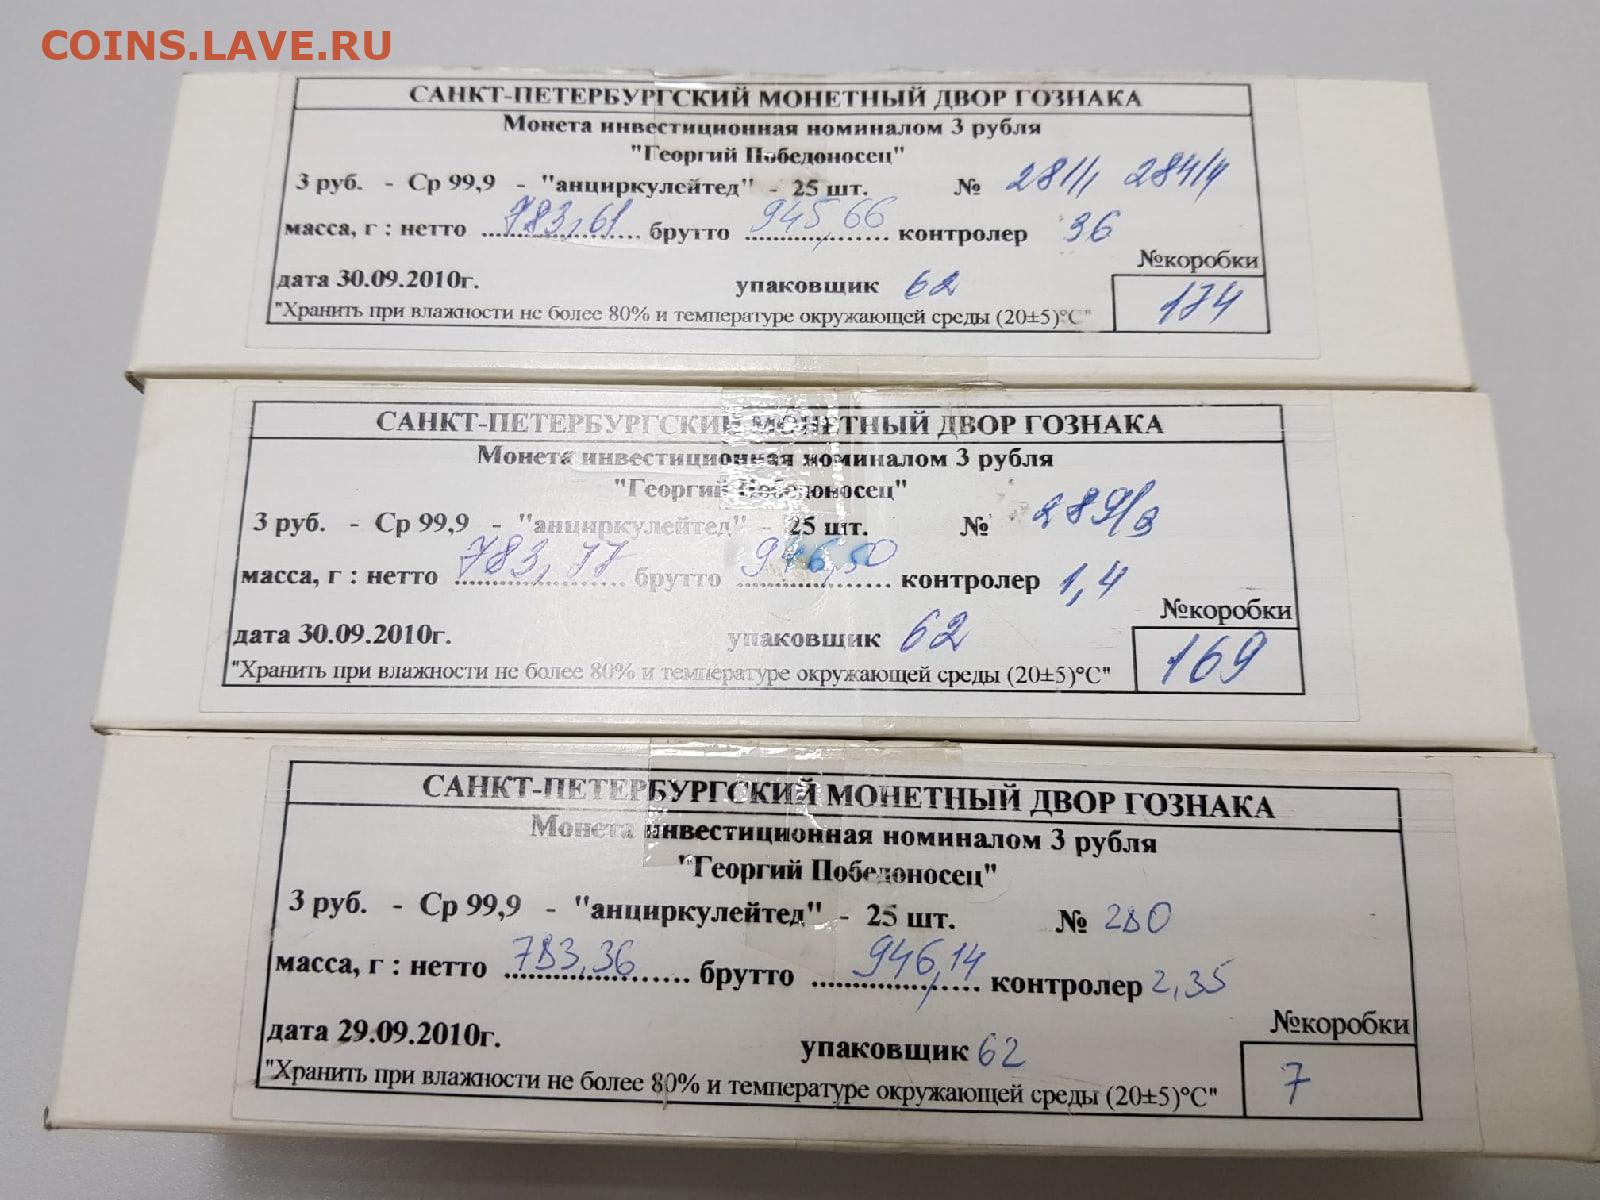 COINS.LAVE.RU
САНКТ-ПЕТЕРБУРГСКИЙ МОНЕТНЫЙ ДВОР ГОЗНАКА
Монета инвестиционная номиналом 3 рубля
"Георгий Победоносец"
3 руб. - Ср 99,9 - "анциркулейтед" - 25 шт. № 281/1 284/4
масса, г : нетто 783,61 брутто 945,66 контролер 36
№коробки
дата 30.09.2010г. упаковщик 62
174
"Хранить при влажности не более 80% и температуре окружающей среды (20±5)°С"
САНКТ-ПЕТЕРБУРГСКИЙ МОНЕТНЫЙ ДВОР ГОЗНАКА
Монета инвестиционная номиналом 3 рубля
"Георгий Победоносец"
3 руб. - Ср 99,9 - "анциркулейтед" - 25 шт. № 289/3
масса, г : нетто 783,77 брутто 946,50 контролер 1,4
№коробки
дата 30.09.2010г. упаковщик 62
169
"Хранить при влажности не более 80% и температуре окружающей среды (20±5)°С"
САНКТ-ПЕТЕРБУРГСКИЙ МОНЕТНЫЙ ДВОР ГОЗНАКА
Монета инвестиционная номиналом 3 рубля
"Георгий Победоносец"
3 руб. - Ср 99,9 - "анциркулейтед" - 25 шт. № 280
масса, г : нетто 783,36 брутто 946,14 контролер 2,35
№коробки
дата 29.09.2010г. упаковщик 62
7
"Хранить при влажности не более 80% и температуре окружающей среды (20±5)°С"